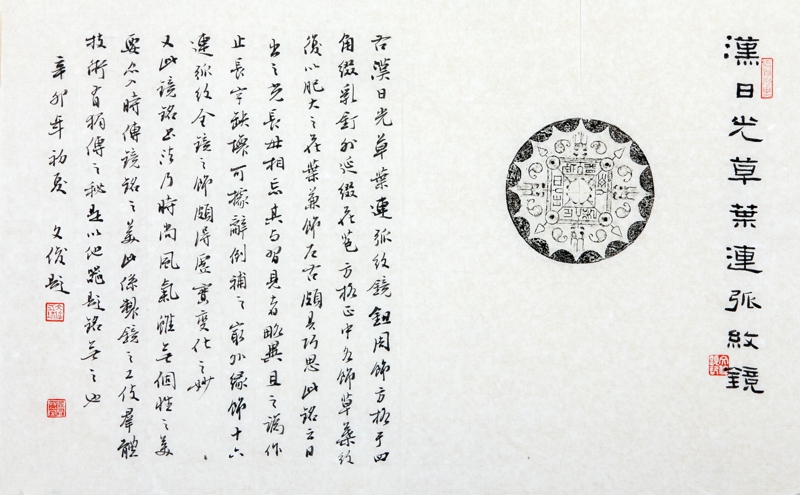 漢日光草葉連弧紋鏡
右漢日光草葉連弧紋鏡鈕周飾方格于四
角綴乳釘外延綴花苞方格正中各飾草葉紋
後以肥大之花葉兼飾左右頗具巧思此銘三日
出之光長毋相忘其与習見者略異且之譌作
止長字缺壞可據辭例補之最外緣飾十六
連弧紋全鏡之飾頗得虛實變化之妙
又此鏡銘書法乃時尚風氣雖無個性之美
要亦入時傳鏡銘之美此係製鏡之工伎群體
技術有獨傳之秘是以他器題銘無之也
辛卯年初夏 文俊題